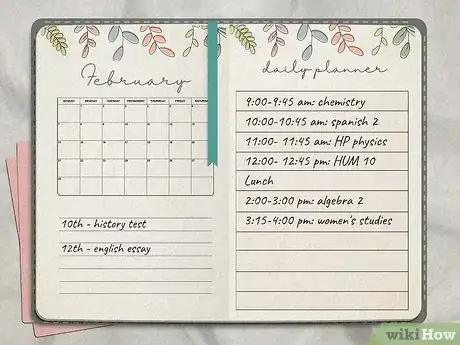 February
SUNDAY MONDAY TUESDAY WEDNESDAY THURSDAY FRIDAY SATURDAY
10th - history test
12th - english essay
daily planner
9:00-9:45 am: chemistry
10:00-10:45 am: spanish 2
11:00- 11:45 am: HP physics
12:00- 12:45 pm: HUM 10
Lunch
2:00-3:00 pm: algebra 2
3:15-4:00 pm: women's studies
wikiHow